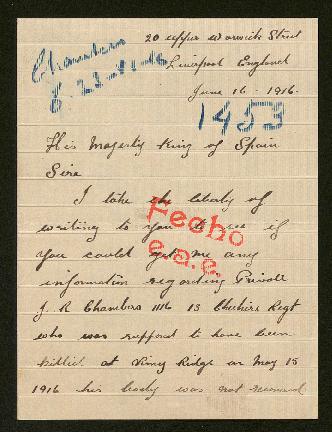 20 upper Warwick Street
Liverpool England
June 16 - 1916.
Chambers
8.23-
1453
His Majesty King of Spain
Sire
I take the liberty of
writing to you to see if
you could get me any
information regarding Private
J. R. Chambers 1116 13 Cheshire Regt
who was suppost to have been
killed at Vimy Ridge on May 15
1916 his body was not
Fecho
e.a.e.